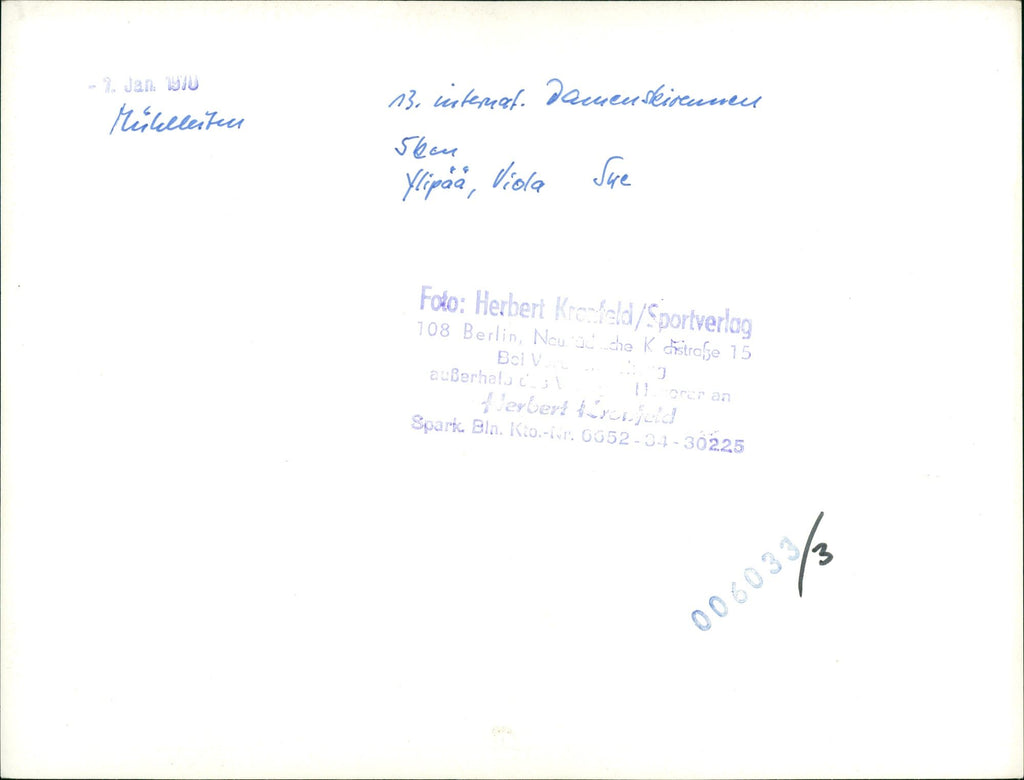 - 7. Jan. 1970
Mühlleiten
13. internat. Damenskirennen
5km
Ylipää, Viola Swe
Foto: Herbert Kronfeld/Sportverlag
108 Berlin, Neustädtische Kirchstraße 15
Bei
außerhalb des Honorar an
Herbert Kronfeld
Spark. Bln. Kto.-Nr. 6652-34-30225
006033/3